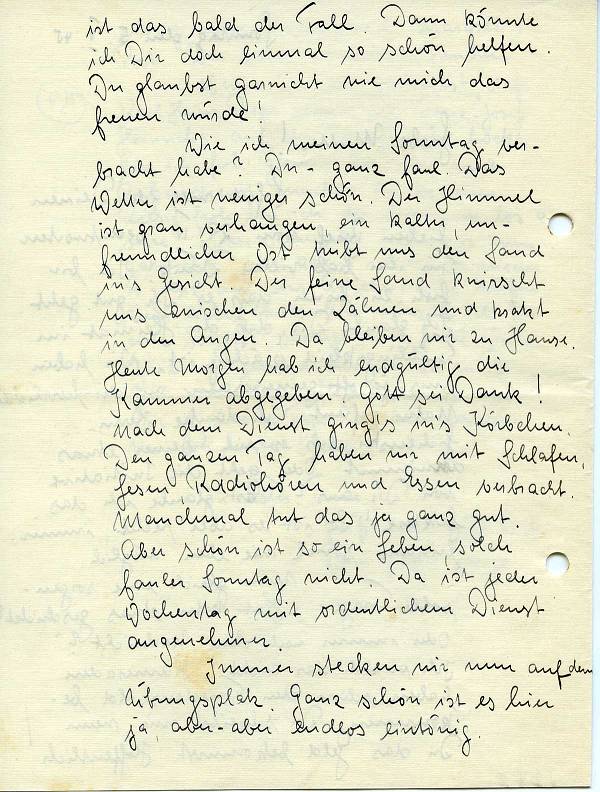 ist das bald der Fall. Dann könnte
ich Dir doch einmal so schön helfen.
Du glaubst garnicht wie mich das
freuen würde!
Wie ich meinen Sonntag ver-
bracht habe? Du - ganz faul. Das
Wetter ist weniger schön. Der Himmel
ist grau verhangen, ein kalter, un-
freundlicher Ost treibt uns den Sand
in's Gesicht. Der feine Sand knirscht
uns zwischen den Zähnen und kratzt
in den Augen. Da bleiben wir zu Hause.
Heute Morgen hab ich endgültig die
Kammer abgegeben. Gott sei Dank!
Nach dem Dienst ging's in's Körbchen.
Den ganzen Tag haben wir mit Schlafen,
Lesen, Radiohören und Essen verbracht.
Manchmal tut das ja ganz gut.
Aber schön ist so ein Leben, solch
fauler Sonntag nicht. Da ist jeder
Wochentag mit ordentlichem Dienst
angenehmer.
Immer stecken wir nun auf dem
Übungsplatz. Ganz schön ist es hier
ja, aber - aber endlos eintönig.